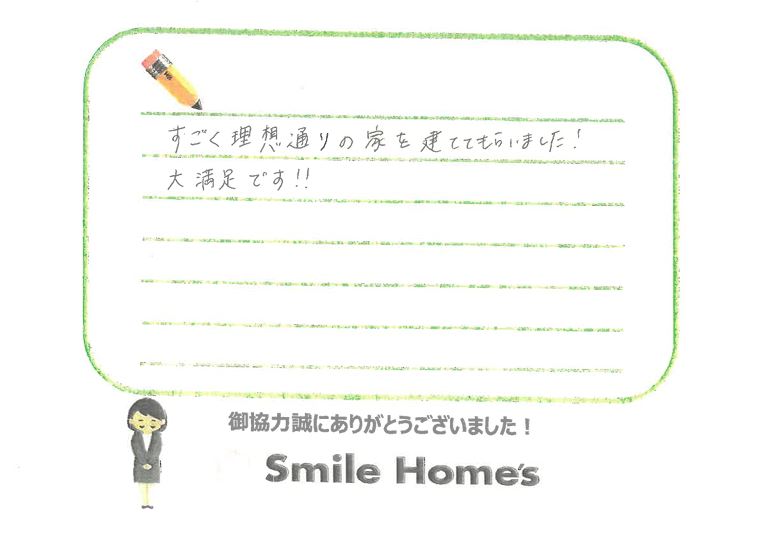 すごく理想通りの家を建ててもらいました!
大満足です!!
御協力誠にありがとうございました！
Smile Home's